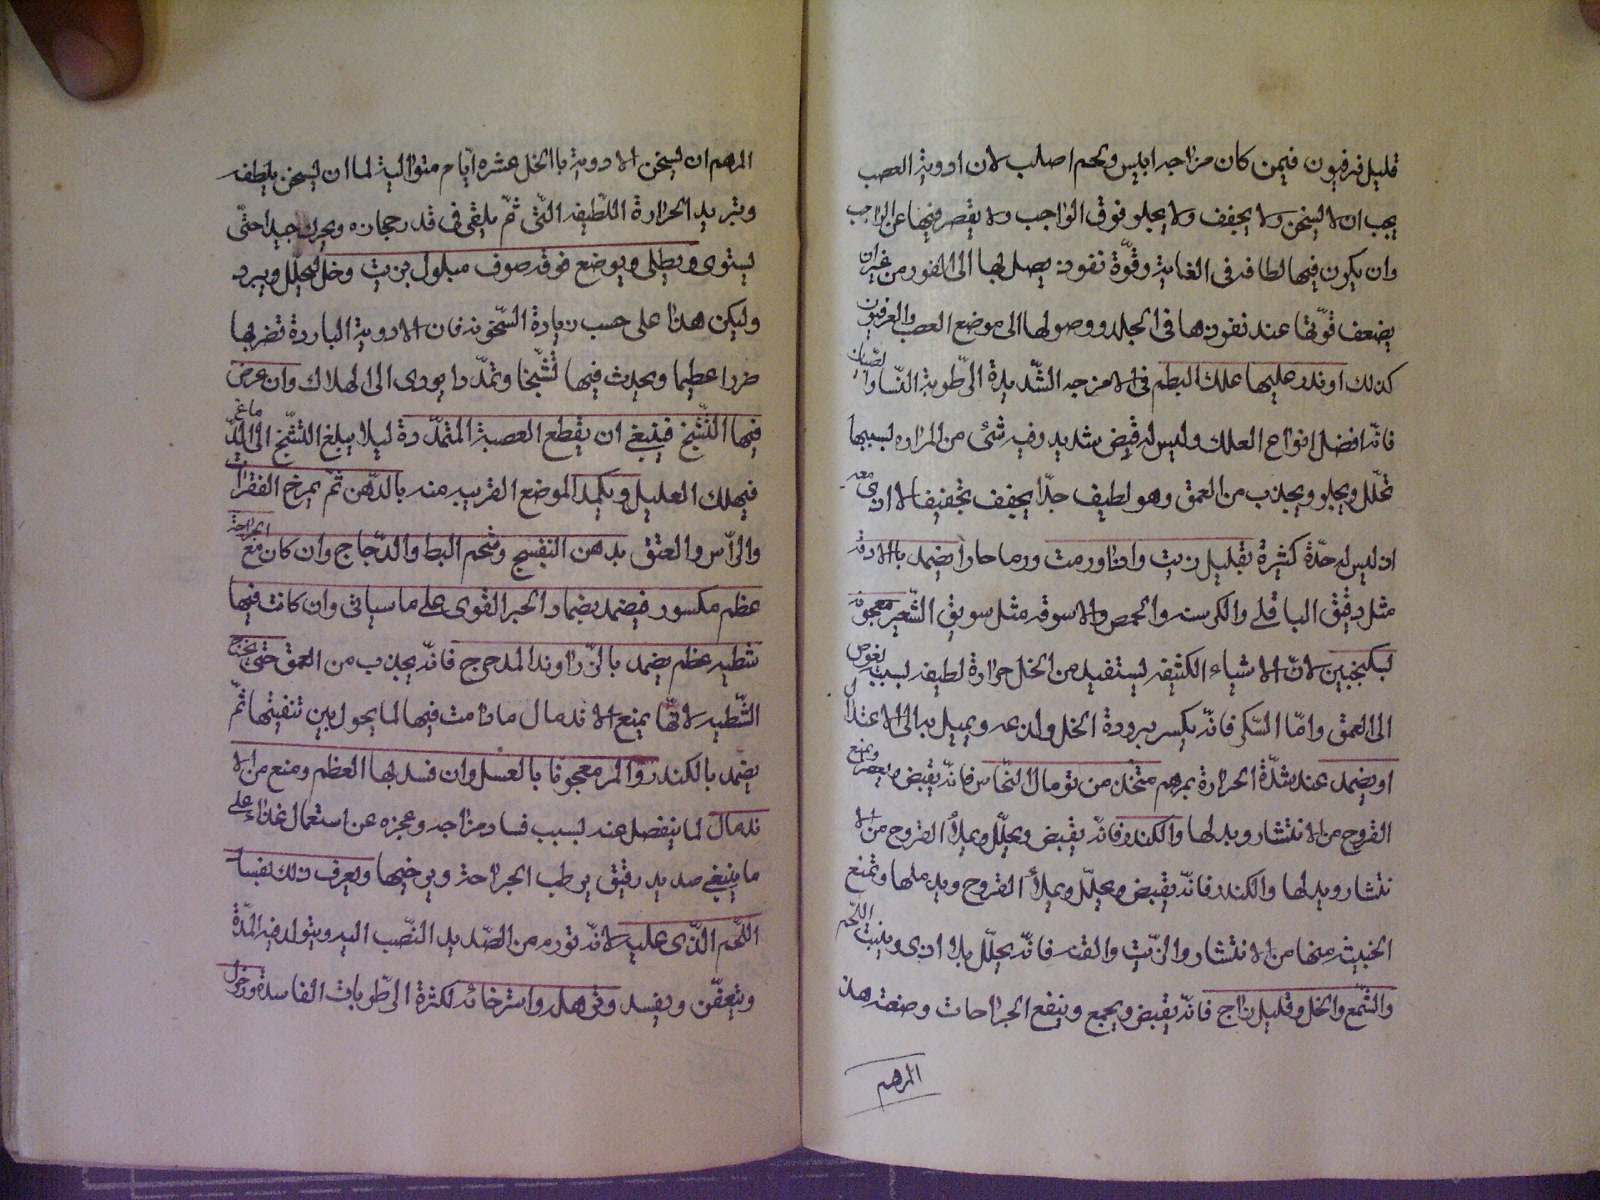 قليل فرفيون فيمن كان مزاجه ايبس ولحمه اصلب لان ادوية العصب
يجب ان لا يسخن ولا يجفف ولا يجلو فوق الواجب ولا يقصر فيها عن الواجب
وان يكون فيها لطافه فى الغاية وقوّة نفوذ يصل بها الى الغور من غير ان
يضعف قوّتها عند نفوذها فى الجلد ووصولها الى موضع العصب والفرفيون
كذلك او يذر عليها علك البطم فى الامزجه الشّديدة الرّطوبة النّسا والصّبيان
فانّه افضل انواع العلك وليس له قبض شديد وفيه شئ من المراره لسببها
تحلّل ويجلو ويجذب من العمق وهو لطيف جدّا يجفف تجفيفا لا اذى معه
اذ ليس له حدّة كثيرة بقليل زيت واذا ورمت ورما حارا يضمد بالادقه
مثل دقيق الباقلى والكرسنه والحمص والاسوقه مثل سويق الشّعير معجونه
بسكنجبين لانّ الاشياء الكثيفه يستفيد من الخل حرارة لطيفه لسبب يغوص
الى العمق وامّا السّكر فانّه يكسر برودة الخل ولذعه ويميل به الى الاعتدال
او يضمد عند شدّة الحرارة بمرهم متخذ من توبال النّحاس فانّه يقبض ويعصر ويمنع
القروح من الانتشار ويدملها والكندر فانّه يقبض ويحلّل ويملأ القروح من الا
نتشار ويدملها والكندر فانّه يقبض ويحلّل ويملأ القروح ويدملها وتمنع
الخبيثه منها من الانتشار والزّيت والقنه فانّه يحلّل بلا اذى وينبت اللّحم
والشّمع والخل وقليل زاج فانّه يقبض ويجمع وينفع الجراحات وصنعة هذا
المرهم
المرهم ان يسخن الادوية بالخل عشره ايّام متوالية لما ان يسخن يلطف
وبتريد الحرارة اللّطيفه الّتى ثمّ يلقى فى قدر جحانه ويحرك جيدا حتّى
يستوى ويطلى ويوضع فوقه صوف مبلول بزيت وخل ليحلّل ويبرد
وليكن هذا على حسب زيادة السّخونه فان الادوية الباردة تضر بها
ضررا عظيما ويحدث فيها تشّنجا وتمدّدا يؤدى الى الهلاك وان عرض
فيها التّشنج فينبغى ان يقطع العصبة المتمدّدة ليلا يبلغ التّشنج الى الدّماغ
فيهلك العليل ويكمد الموضع القريب منه بالدّهن ثمّ يمرخ الفقرات
والرأس والعنق بدهن البنفسج وشحم البط والدّجاج وان كان مع الجراحة
عظم مكسور فيضمد بضماد الجبر القوى على ما سياتى وان كانت فيها
شظيه عظم يضمد بالزّراوند المدحرج فانّه يجذب من العمق حتى يخرج
الشّظيه لانّها يمنع الاندمال ما دامت فيها لما يحول بين تنقيتها ثمّ
يضمد بالكندر والمر معجونا بالعسل وان فسد بها العظم ومنع من الا
ندمال لما ينفصل عنه لسبب فساد مزاجه وعجزه عن استعمال غذاء على
ما ينبغى صديد رقيق يرطب الجراحة ويرخيها ويعرف ذلك بفساد
اللّحم الّذى عليه لانّه تورم من الصّديد النّصب اليه ويتولد فيه المدّة
ويتعفّن ويفسد وترهله واسترخائه لكثرة الرّطوبات الفاسدة ودخول